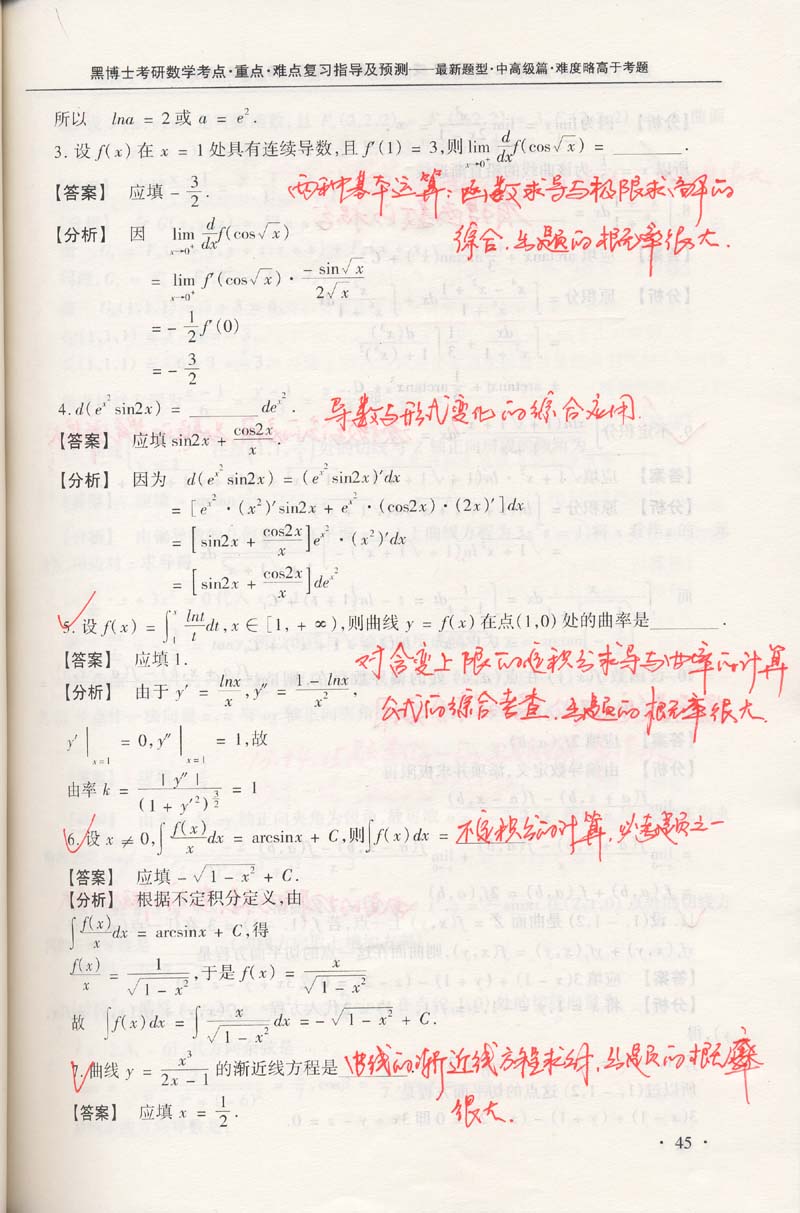 黑博士考研数学考点·重点·难点复习指导及预测——最新题型·中高级篇·难度略高于考题
所以 lna = 2 或 a = e².
3. 设 f(x) 在 x = 1 处具有连续导数,且 f′(1) = 3,则 lim_{x→0⁺} d/dx f(cos√x) = ________.
【答案】 应填 - 3/2.
两种基本运算：函数求导与极限求解的
【分析】 因 lim_{x→0⁺} d/dx f(cos√x)
综合.出题的概率很大.
= lim_{x→0⁺} f′(cos√x) · (-sin√x)/(2√x)
= - 1/2 f′(0)
= - 3/2
4. d(e^{x²} sin2x) = ________ de^{x²}.
导数与形式变化的综合应用.
【答案】 应填 sin2x + cos2x/x.
【分析】 因为 d(e^{x²} sin2x) = (e^{x²} sin2x)′dx
= [e^{x²} · (x²)′sin2x + e^{x²} · (cos2x) · (2x)′]dx
= [sin2x + cos2x/x] e^{x²} · (x²)′dx
= [sin2x + cos2x/x] de^{x²}
5. 设 f(x) = ∫₁ˣ lnt/t dt, x ∈ [1, + ∞),则曲线 y = f(x) 在点(1,0) 处的曲率是________.
【答案】 应填 1.
对含变上限的定积分求导与曲率的计算
【分析】 由于 y′ = lnx/x, y″ = (1 - lnx)/x²,
公式的综合考查.出题的概率很大.
y′|_{x=1} = 0, y″|_{x=1} = 1,故
由率 k = |y″|/(1 + y′²)^{3/2} = 1
6. 设 x ≠ 0, ∫ f(x)/x dx = arcsinx + C,则∫f(x)dx = 不定积分的计算,必考题之一
【答案】 应填 -√(1 - x²) + C.
【分析】 根据不定积分定义,由
∫ f(x)/x dx = arcsinx + C,得
f(x)/x = 1/√(1 - x²),于是 f(x) = x/√(1 - x²)
故 ∫f(x)dx = ∫ x/√(1 - x²) dx = -√(1 - x²) + C.
7. 曲线 y = x³/(2x - 1) 的渐近线方程是 曲线的渐近线方程求解,出题的概率
很大.
【答案】 应填 x = 1/2.
· 45 ·